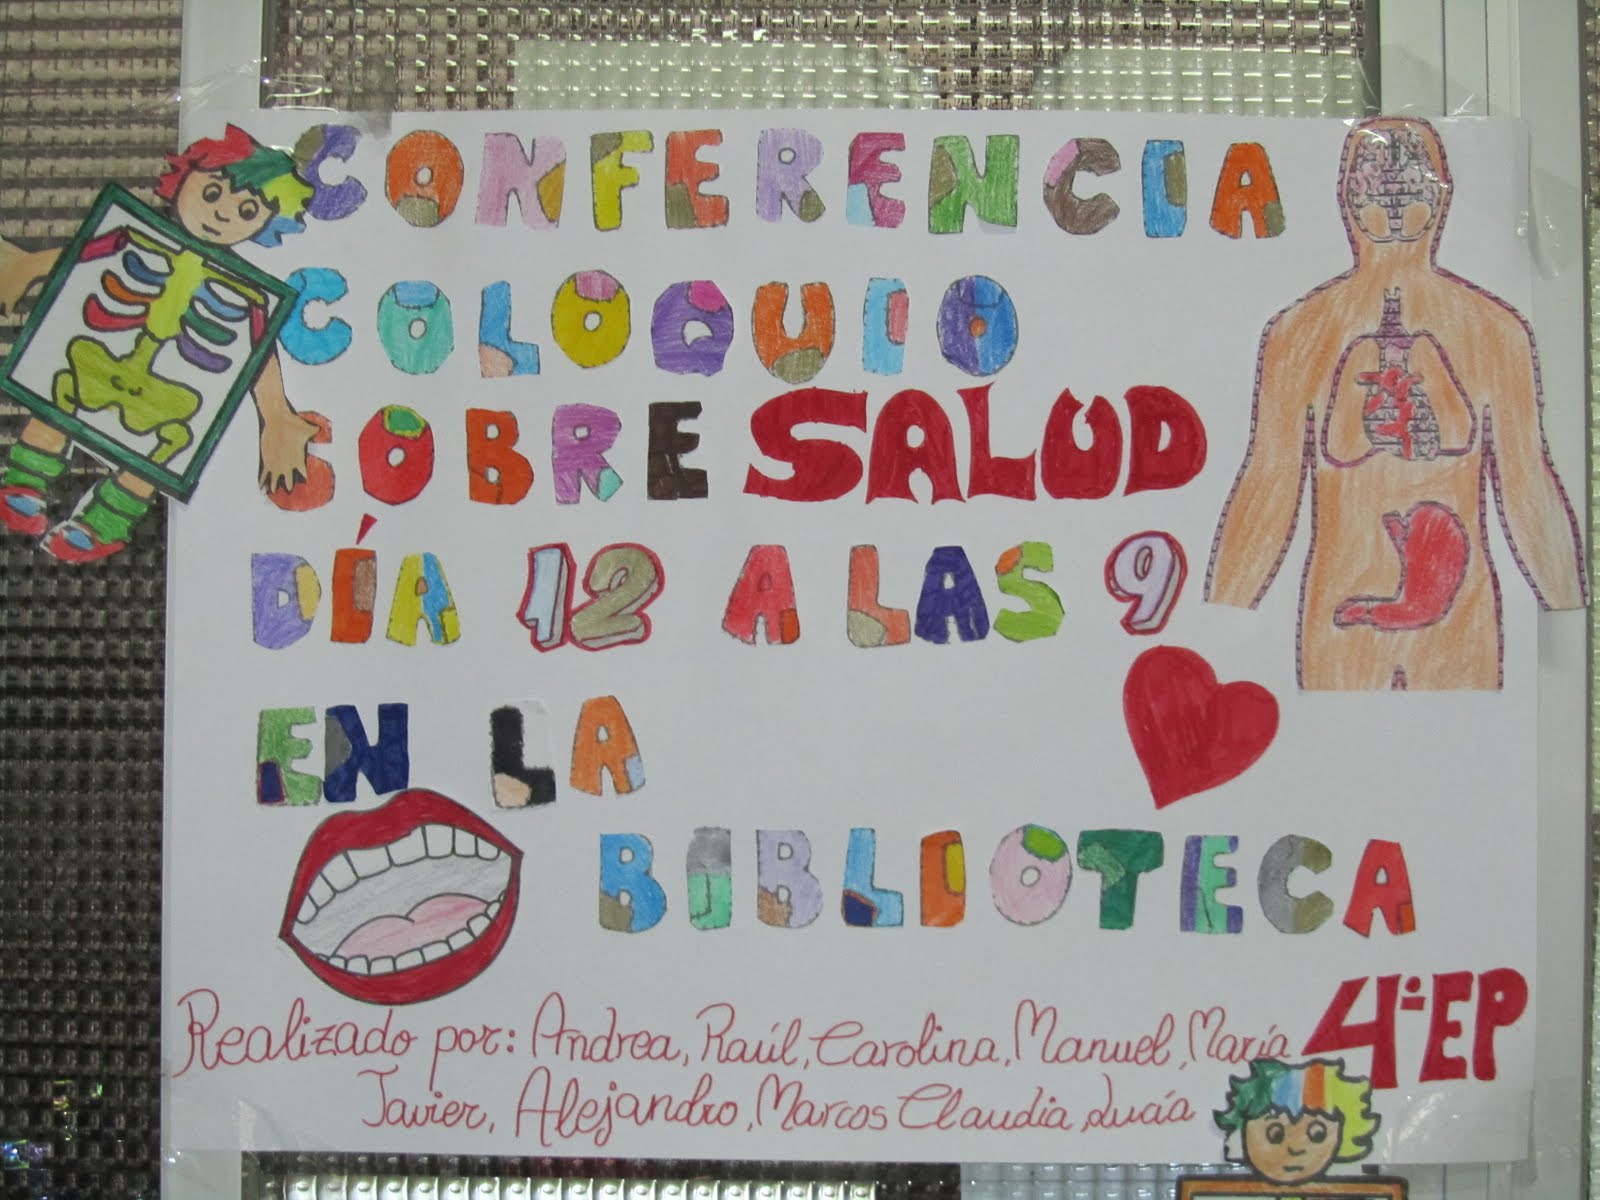 CONFERENCIA
COLOQUIO
SOBRE SALUD
DÍA 12 A LAS 9
EN LA
BIBLIOTECA
Realizado por: Andrea, Raúl, Carolina, Manuel, María
Javier, Alejandro, Marcos Claudia, Lucía
4º EP